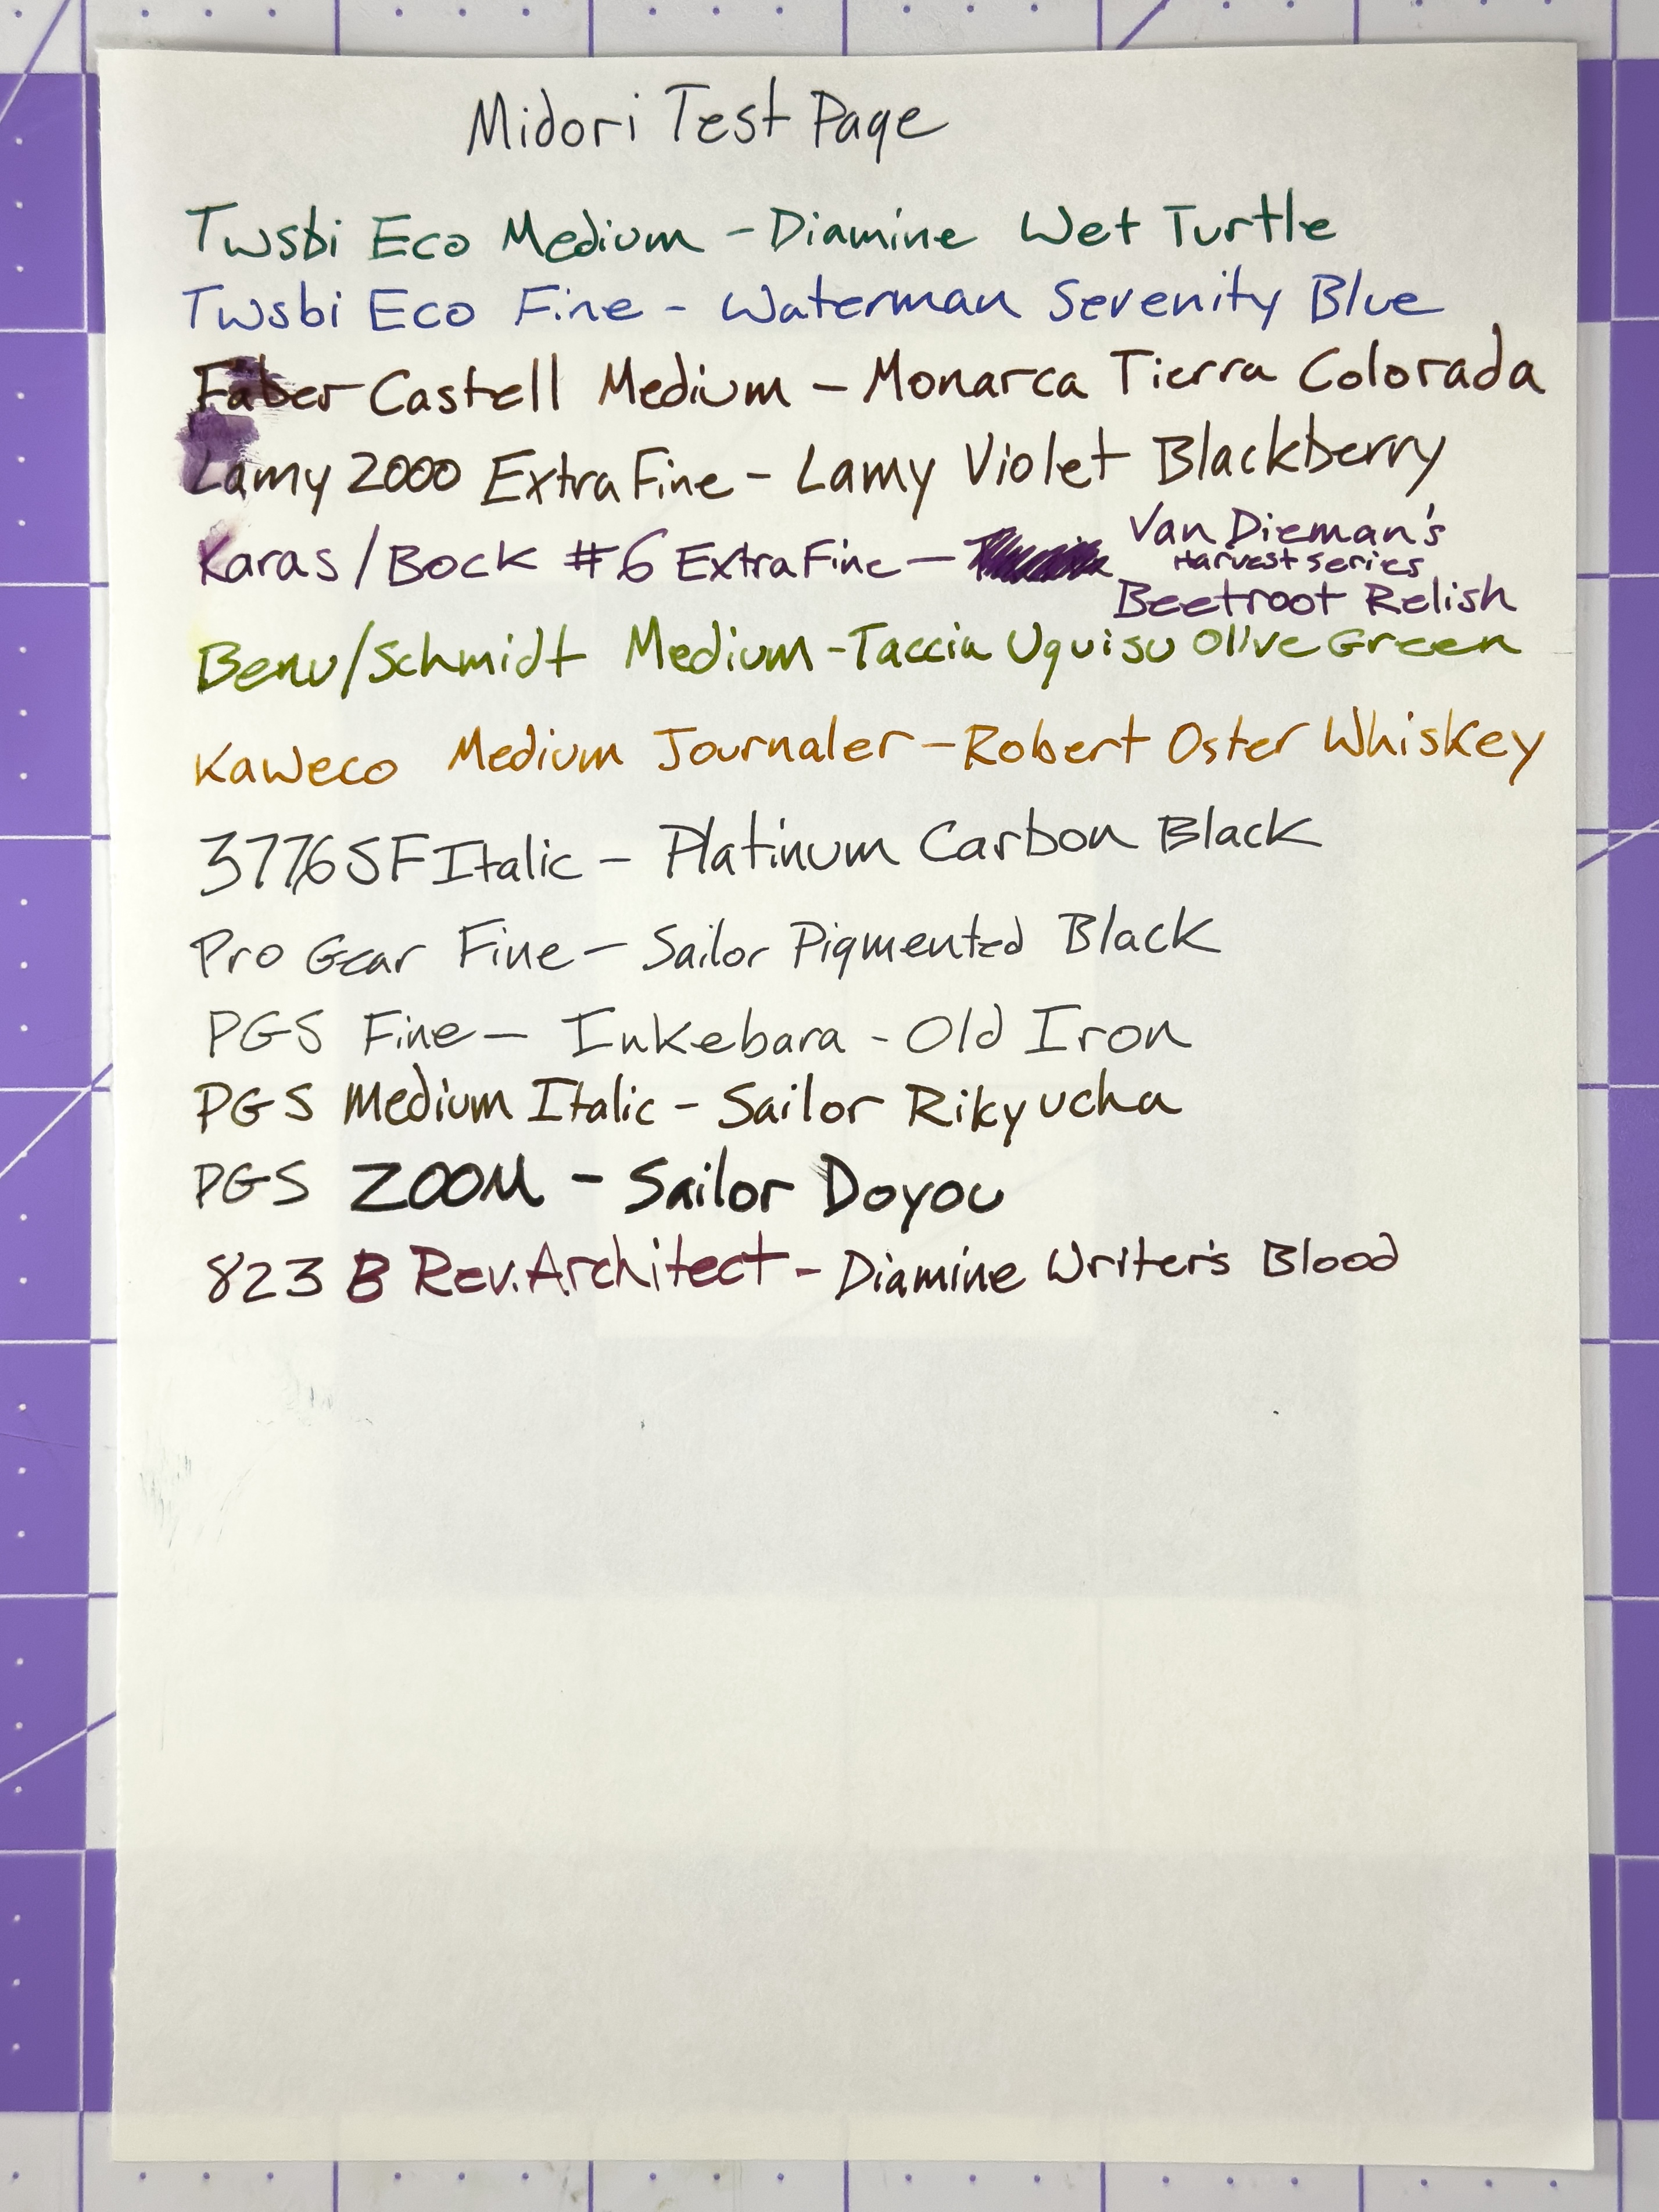 Midori Test Page
Twsbi Eco Medium - Diamine Wet Turtle
Twsbi Eco Fine - Waterman Serenity Blue
Faber-Castell Medium - Monarca Tierra Colorada
Lamy 2000 Extra Fine - Lamy Violet Blackberry
Karas/Bock #6 Extra Fine - Van Dieman's
Harvest Series
Beetroot Relish
Benu/Schmidt Medium - Taccia Uguisu Olive Green
Kaweco Medium Journaler - Robert Oster Whiskey
3776 SF Italic - Platinum Carbon Black
Pro Gear Fine - Sailor Pigmented Black
PGS Fine - Inkebara - Old Iron
PGS Medium Italic - Sailor Rikyucha
PGS ZOOM - Sailor Doyou
823 B Rev. Architect - Diamine Writer's Blood